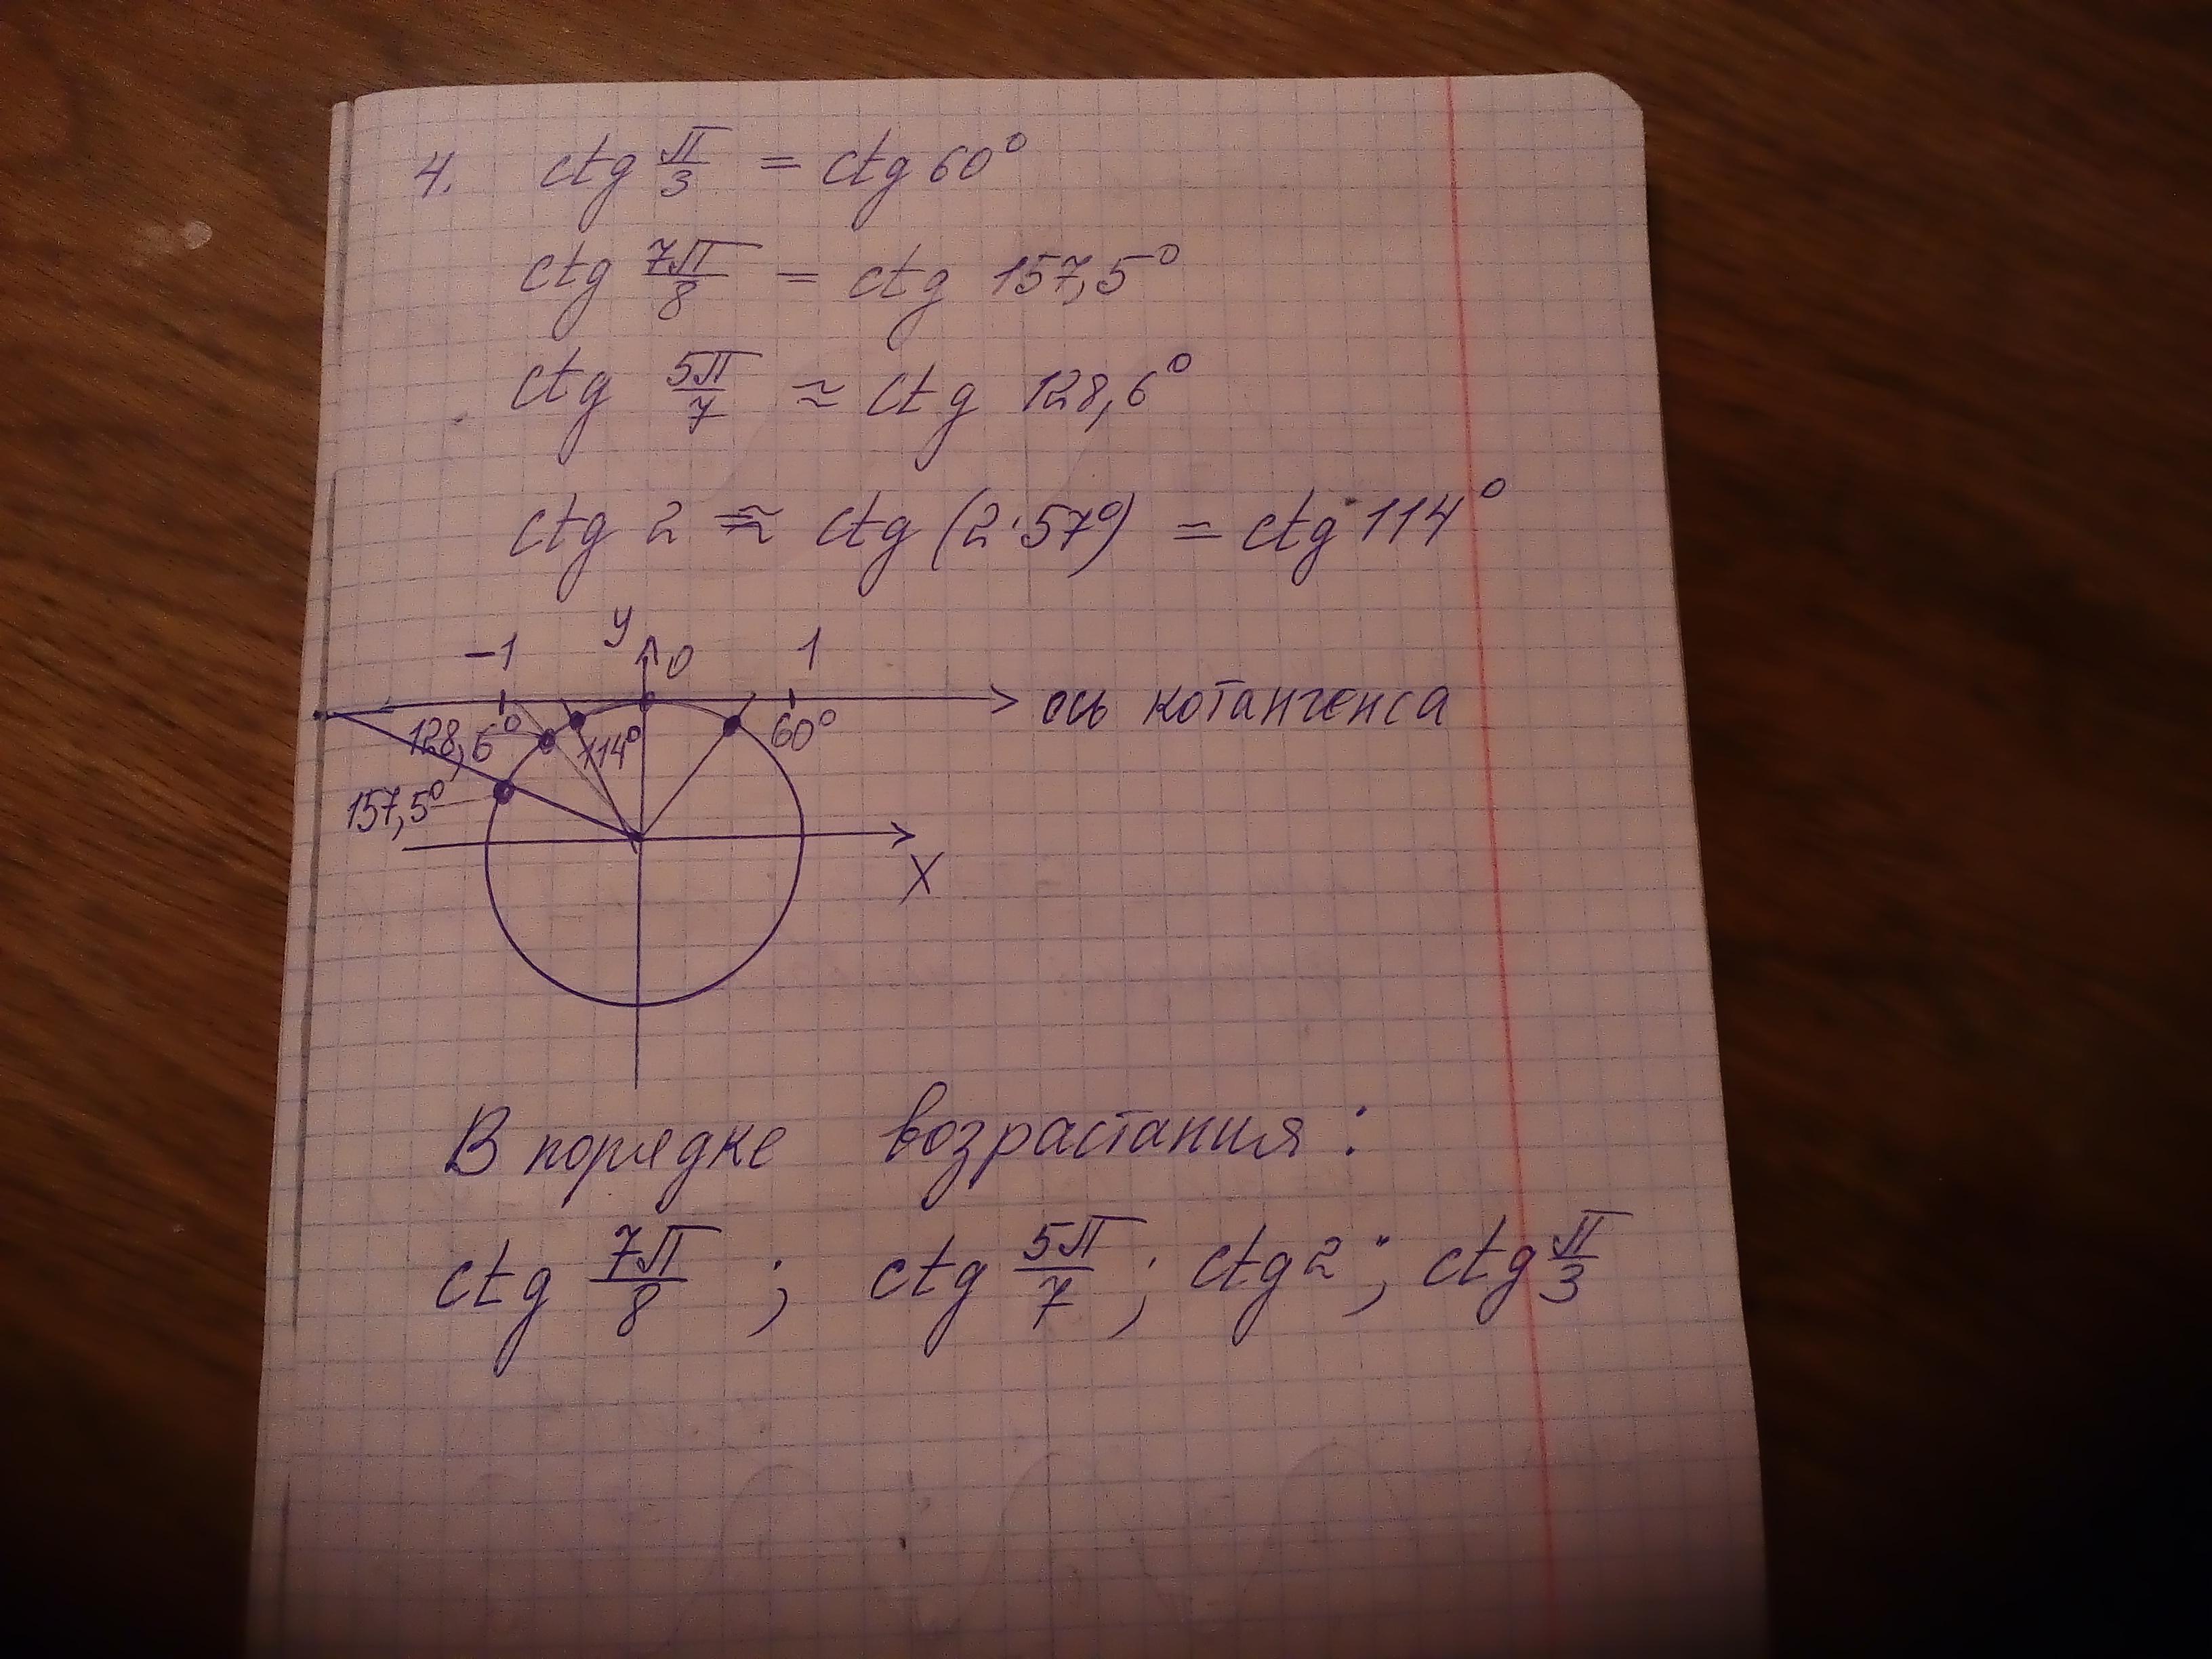 4. ctg π/3 = ctg 60°
ctg 7π/8 = ctg 157,5°
ctg 5π/7 ≈ ctg 128,6°
ctg 2 ≈ ctg (2·57°) = ctg 114°
y
-1 0 1
ось котангенса
128,6° 114° 60°
157,5°
x
В порядке возрастания:
ctg 7π/8 ; ctg 5π/7 ; ctg 2 ; ctg π/3